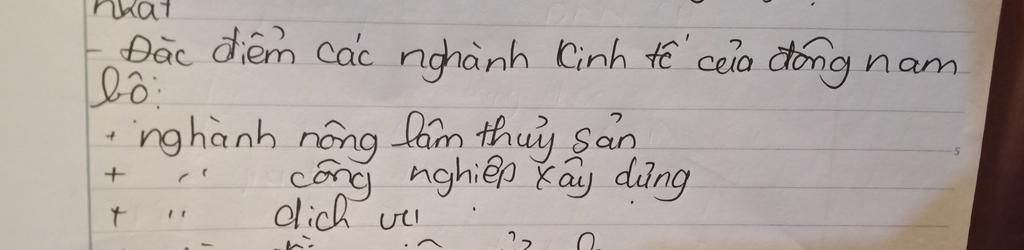 nhất
- Đặc điểm các nghành kinh tế của đông nam
bộ:
+ nghành nông lâm thủy sản
+ '' công nghiệp xây dựng
+ '' dịch vụ